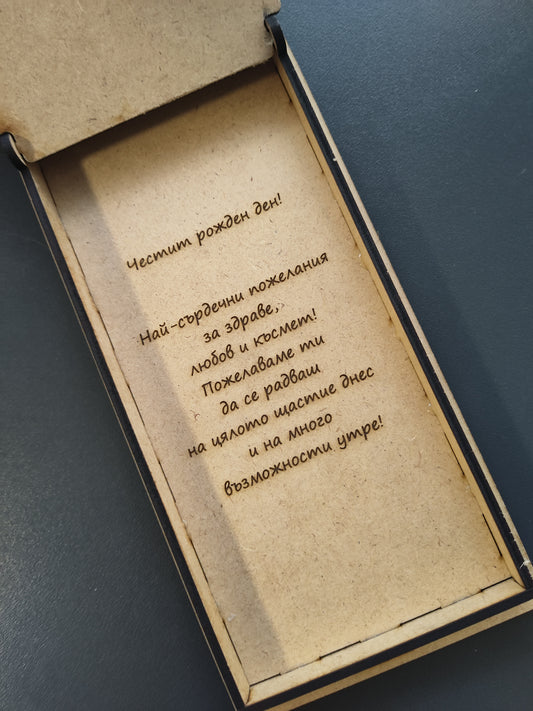 Честит рожден ден!
Най-сърдечни пожелания
за здраве,
любов и късмет!
Пожелаваме ти
да се радваш
на цялото щастие днес
и на много
възможности утре!